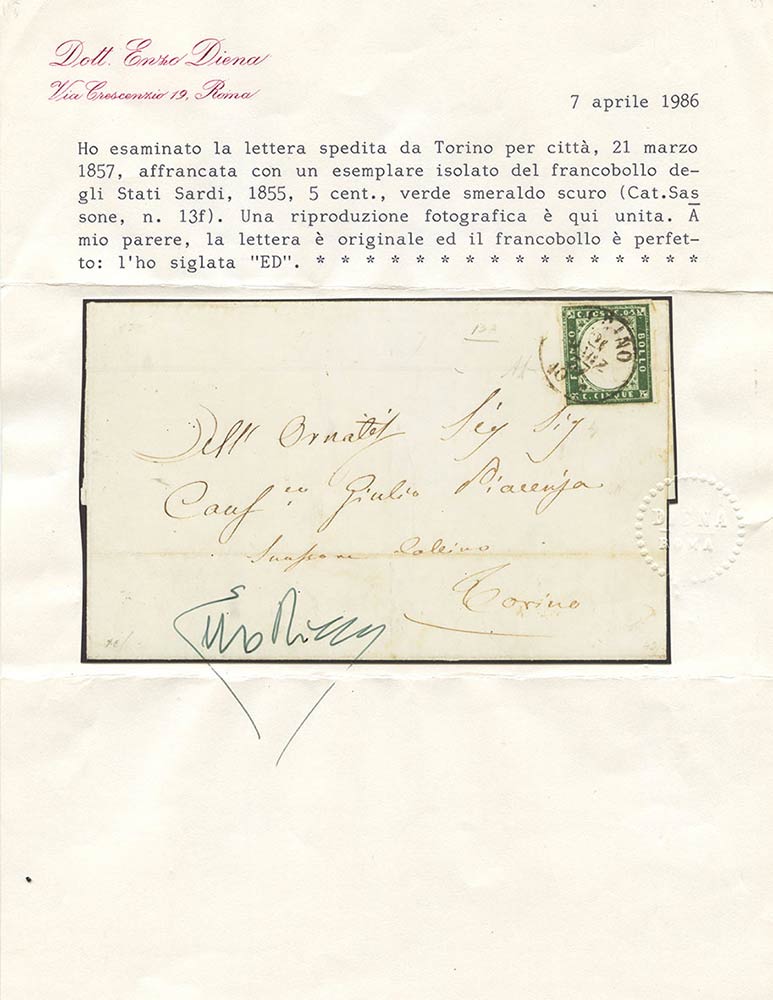 Dott. Enzo Diena
Via Crescenzio 19, Roma
7 aprile 1986
Ho esaminato la lettera spedita da Torino per città, 21 marzo
1857, affrancata con un esemplare isolato del francobollo de-
gli Stati Sardi, 1855, 5 cent., verde smeraldo scuro (Cat.Sas
sone, n. 13f). Una riproduzione fotografica è qui unita. A
mio parere, la lettera è originale ed il francobollo è perfet-
to: l'ho siglata "ED". * * * * * * * * * * * * * * * *
FRANCO
BOLLO
C. CINQUE
Dell' Ornat Sig Sig
Caus Giulio Piacenza
Torino
DIENA
ROMA